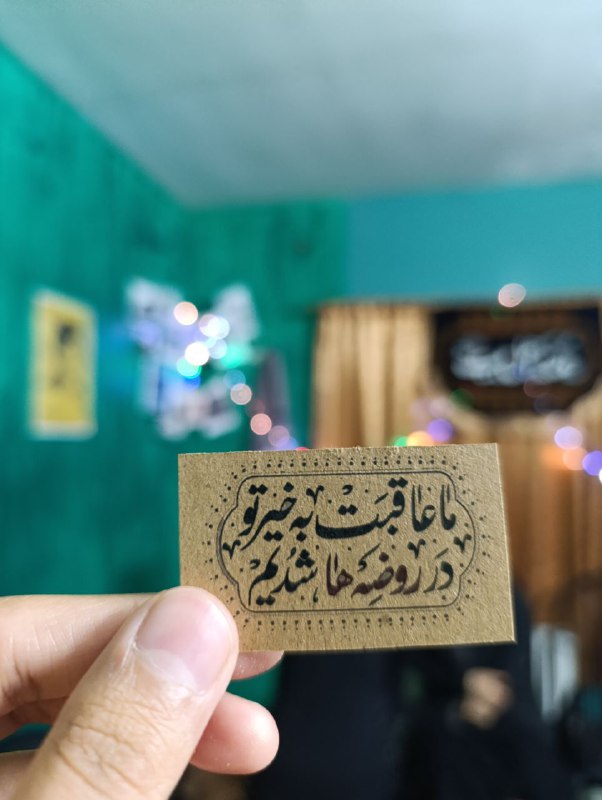 ما عاقبت به خیر تو
در روضه ها شدیم